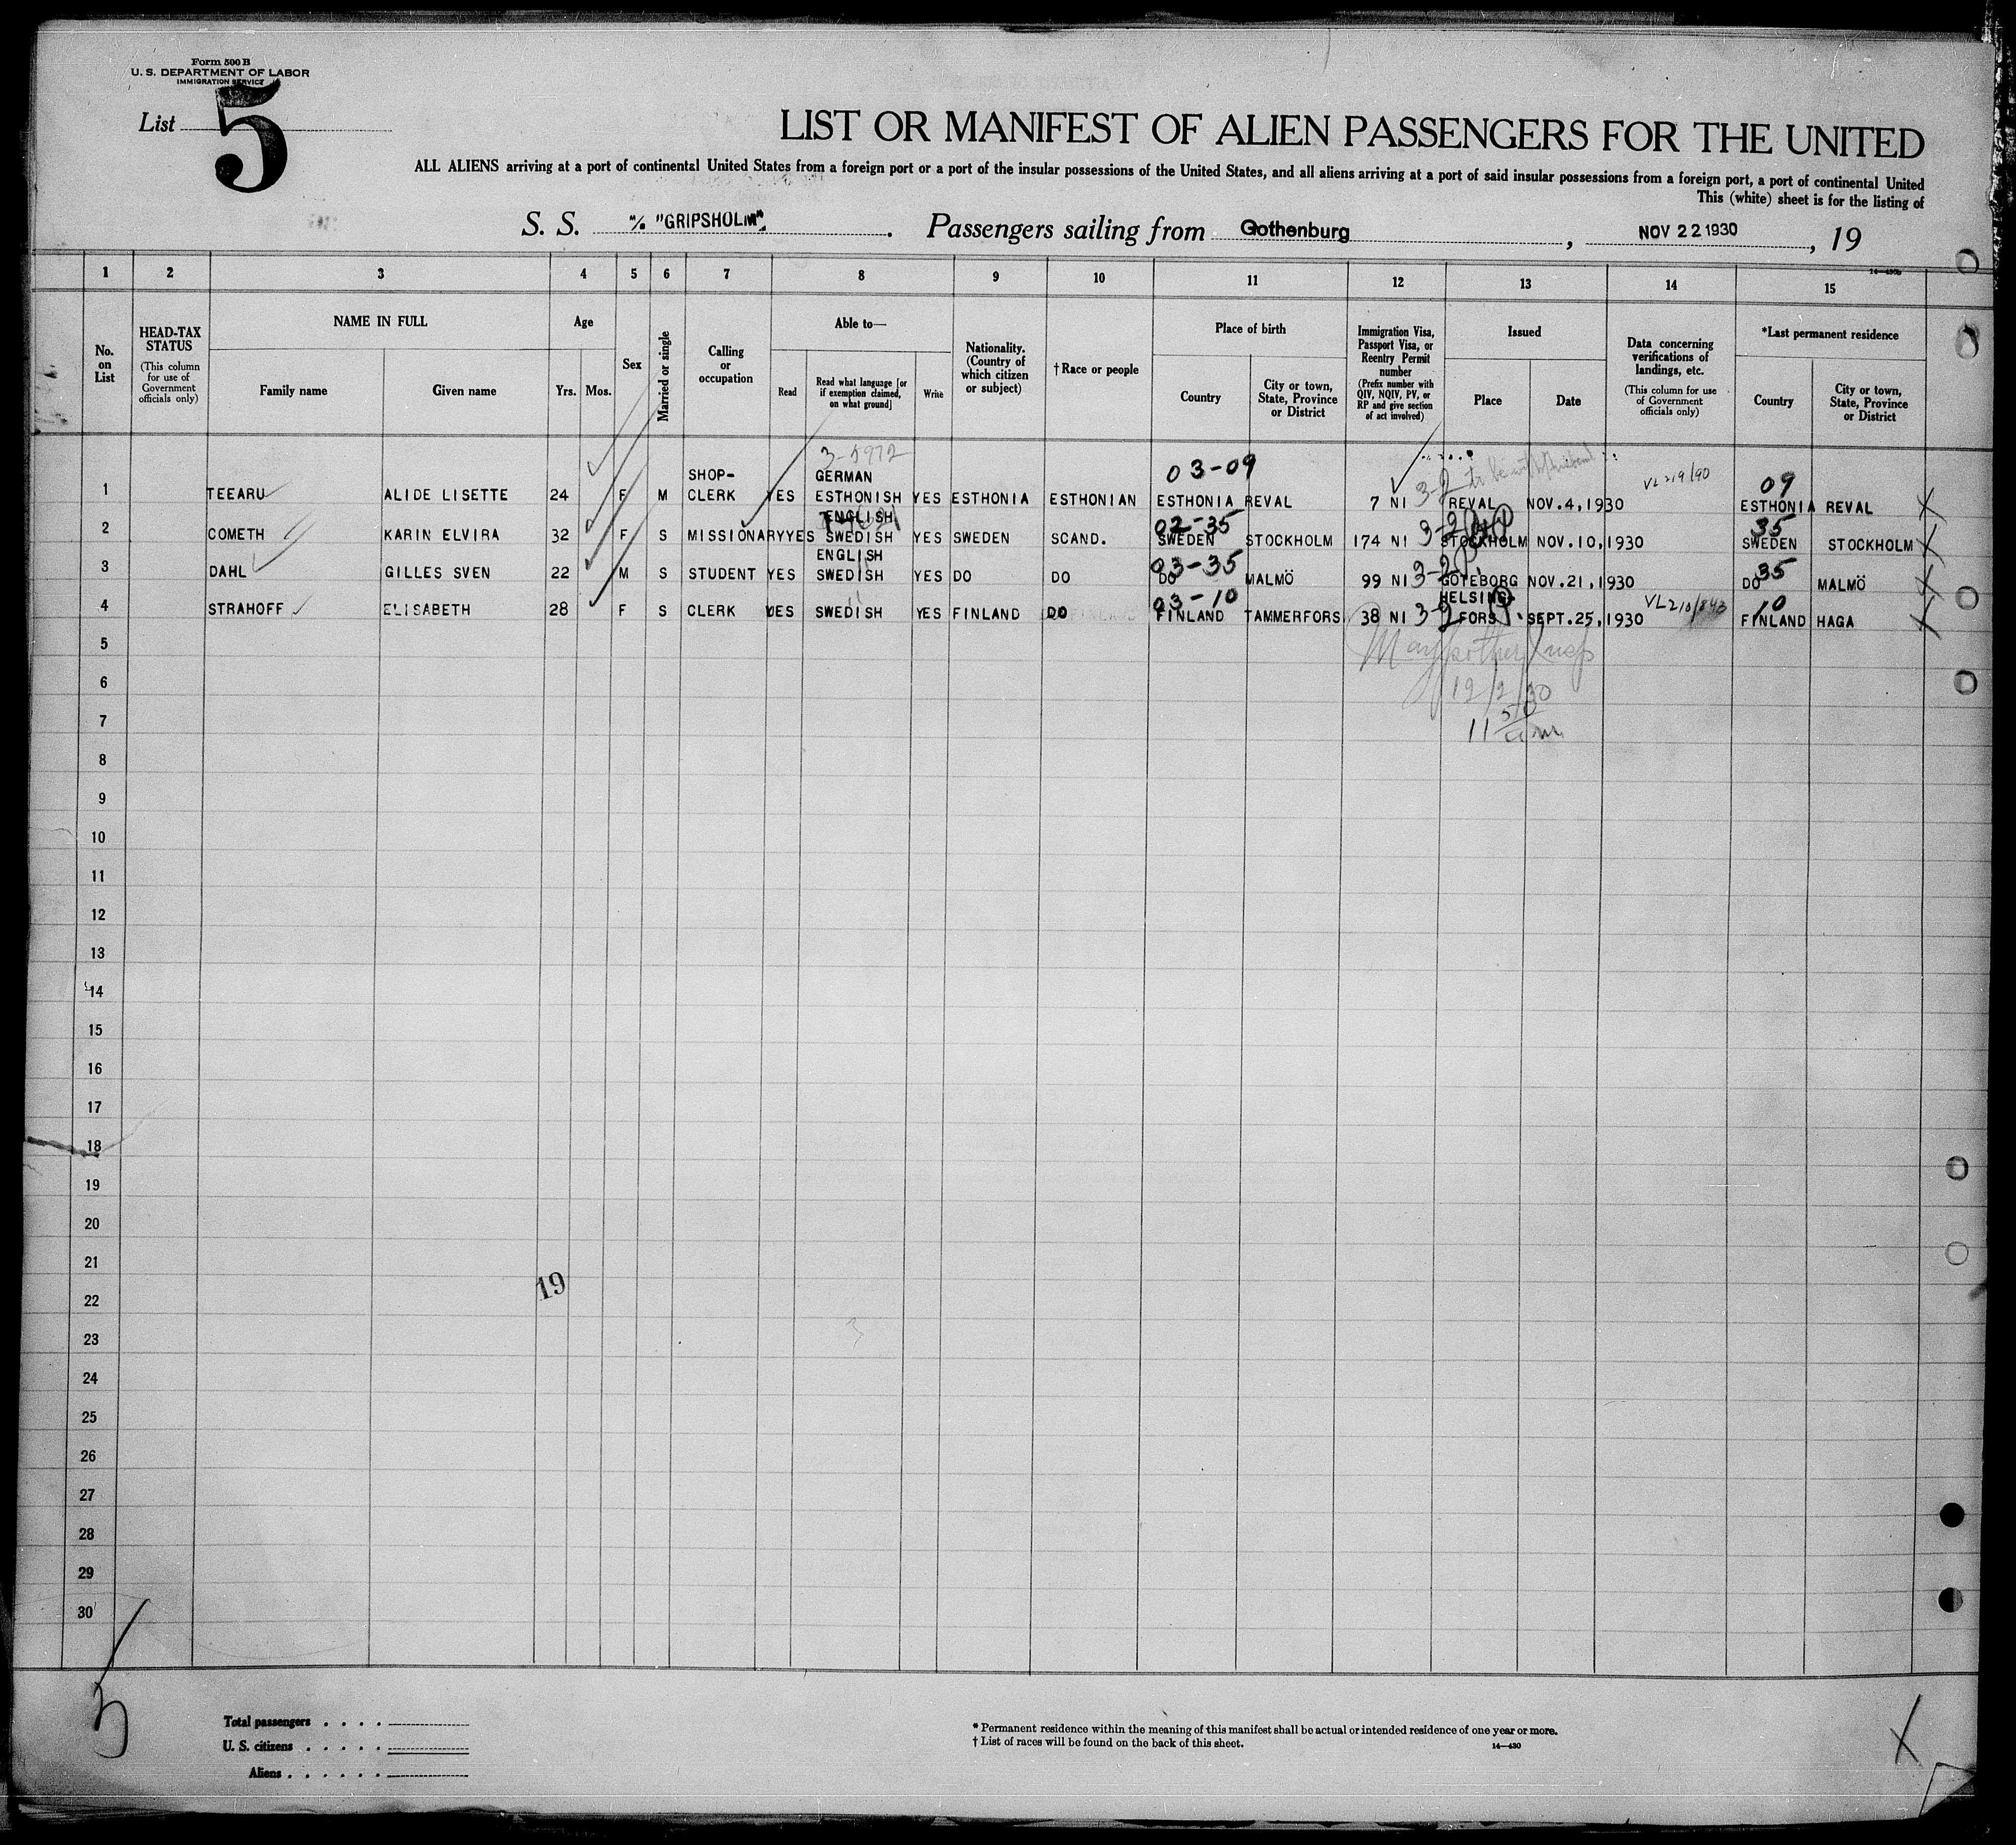 Form 500 B
U. S. DEPARTMENT OF LABOR
IMMIGRATION SERVICE
List 5
LIST OR MANIFEST OF ALIEN PASSENGERS FOR THE UNITED
ALL ALIENS arriving at a port of continental United States from a foreign port or a port of the insular possessions of the United States, and all aliens arriving at a port of said insular possessions from a foreign port, a port of continental United
This (white) sheet is for the listing of
S. S. M/S "GRIPSHOLM". Passengers sailing from Gothenburg, NOV 22 1930, 19
14—430b
1 2 3 4 5 6 7 8 9 10 11 12 13 14 15
No. on List
HEAD-TAX STATUS
(This column for use of Government officials only)
NAME IN FULL
Family name
Given name
Age
Yrs. Mos.
Sex
Married or single
Calling or occupation
Able to—
Read
Read what language [or if exemption claimed, on what ground]
Write
Nationality. (Country of which citizen or subject)
†Race or people
Place of birth
Country
City or town, State, Province or District
Immigration Visa, Passport Visa, or Reentry Permit number
(Prefix number with QIV, NQIV, PV, or RP and give section of act involved)
Issued
Place
Date
Data concerning verifications of landings, etc.
(This column for use of Government officials only)
*Last permanent residence
Country
City or town, State, Province or District
3-5972
03-09
3-2 to be with husband
VL 219/90
09
1 TEEARU ALIDE LISETTE 24 F M SHOP-CLERK YES GERMAN ESTHONISH YES ESTHONIA ESTHONIAN ESTHONIA REVAL 7 NI REVAL NOV.4,1930 ESTHONIA REVAL X
02-35
3-2
35
2 COMETH KARIN ELVIRA 32 F S MISSIONARY YES ENGLISH SWEDISH YES SWEDEN SCAND. SWEDEN STOCKHOLM 174 NI STOCKHOLM NOV.10,1930 SWEDEN STOCKHOLM X
03-35
3-2
35
3 DAHL GILLES SVEN 22 M S STUDENT YES ENGLISH SWEDISH YES DO DO DO MALMÖ 99 NI GÖTEBORG NOV.21,1930 DO MALMÖ X
03-10
3-2
VL 210/843
10
4 STRAHOFF ELISABETH 28 F S CLERK YES SWEDISH YES FINLAND DO FINLAND TAMMERFORS 38 NI HELSINGFORS SEPT.25,1930 FINLAND HAGA X
5
6
12/2/30
7
11 50 am
8
9
10
11
12
13
14
15
16
17
18
19
20
21
19
22
23
24
25
26
27
28
29
30
5
Total passengers . . . .
U. S. citizens . . . . .
Aliens . . . . . .
* Permanent residence within the meaning of this manifest shall be actual or intended residence of one year or more.
† List of races will be found on the back of this sheet.
14—430
X